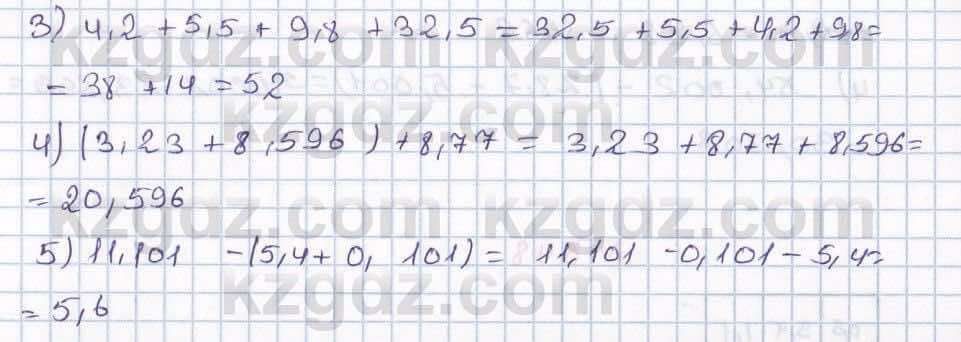 3) 4,2 + 5,5 + 9,8 + 32,5 = 32,5 + 5,5 + 4,2 + 9,8 =
= 38 + 14 = 52
4) (3,23 + 8,596) + 8,77 = 3,23 + 8,77 + 8,596 =
= 20,596
5) 11,101 - (5,4 + 0, 101) = 11,101 - 0,101 - 5,4 =
= 5,6
kzgdz.com